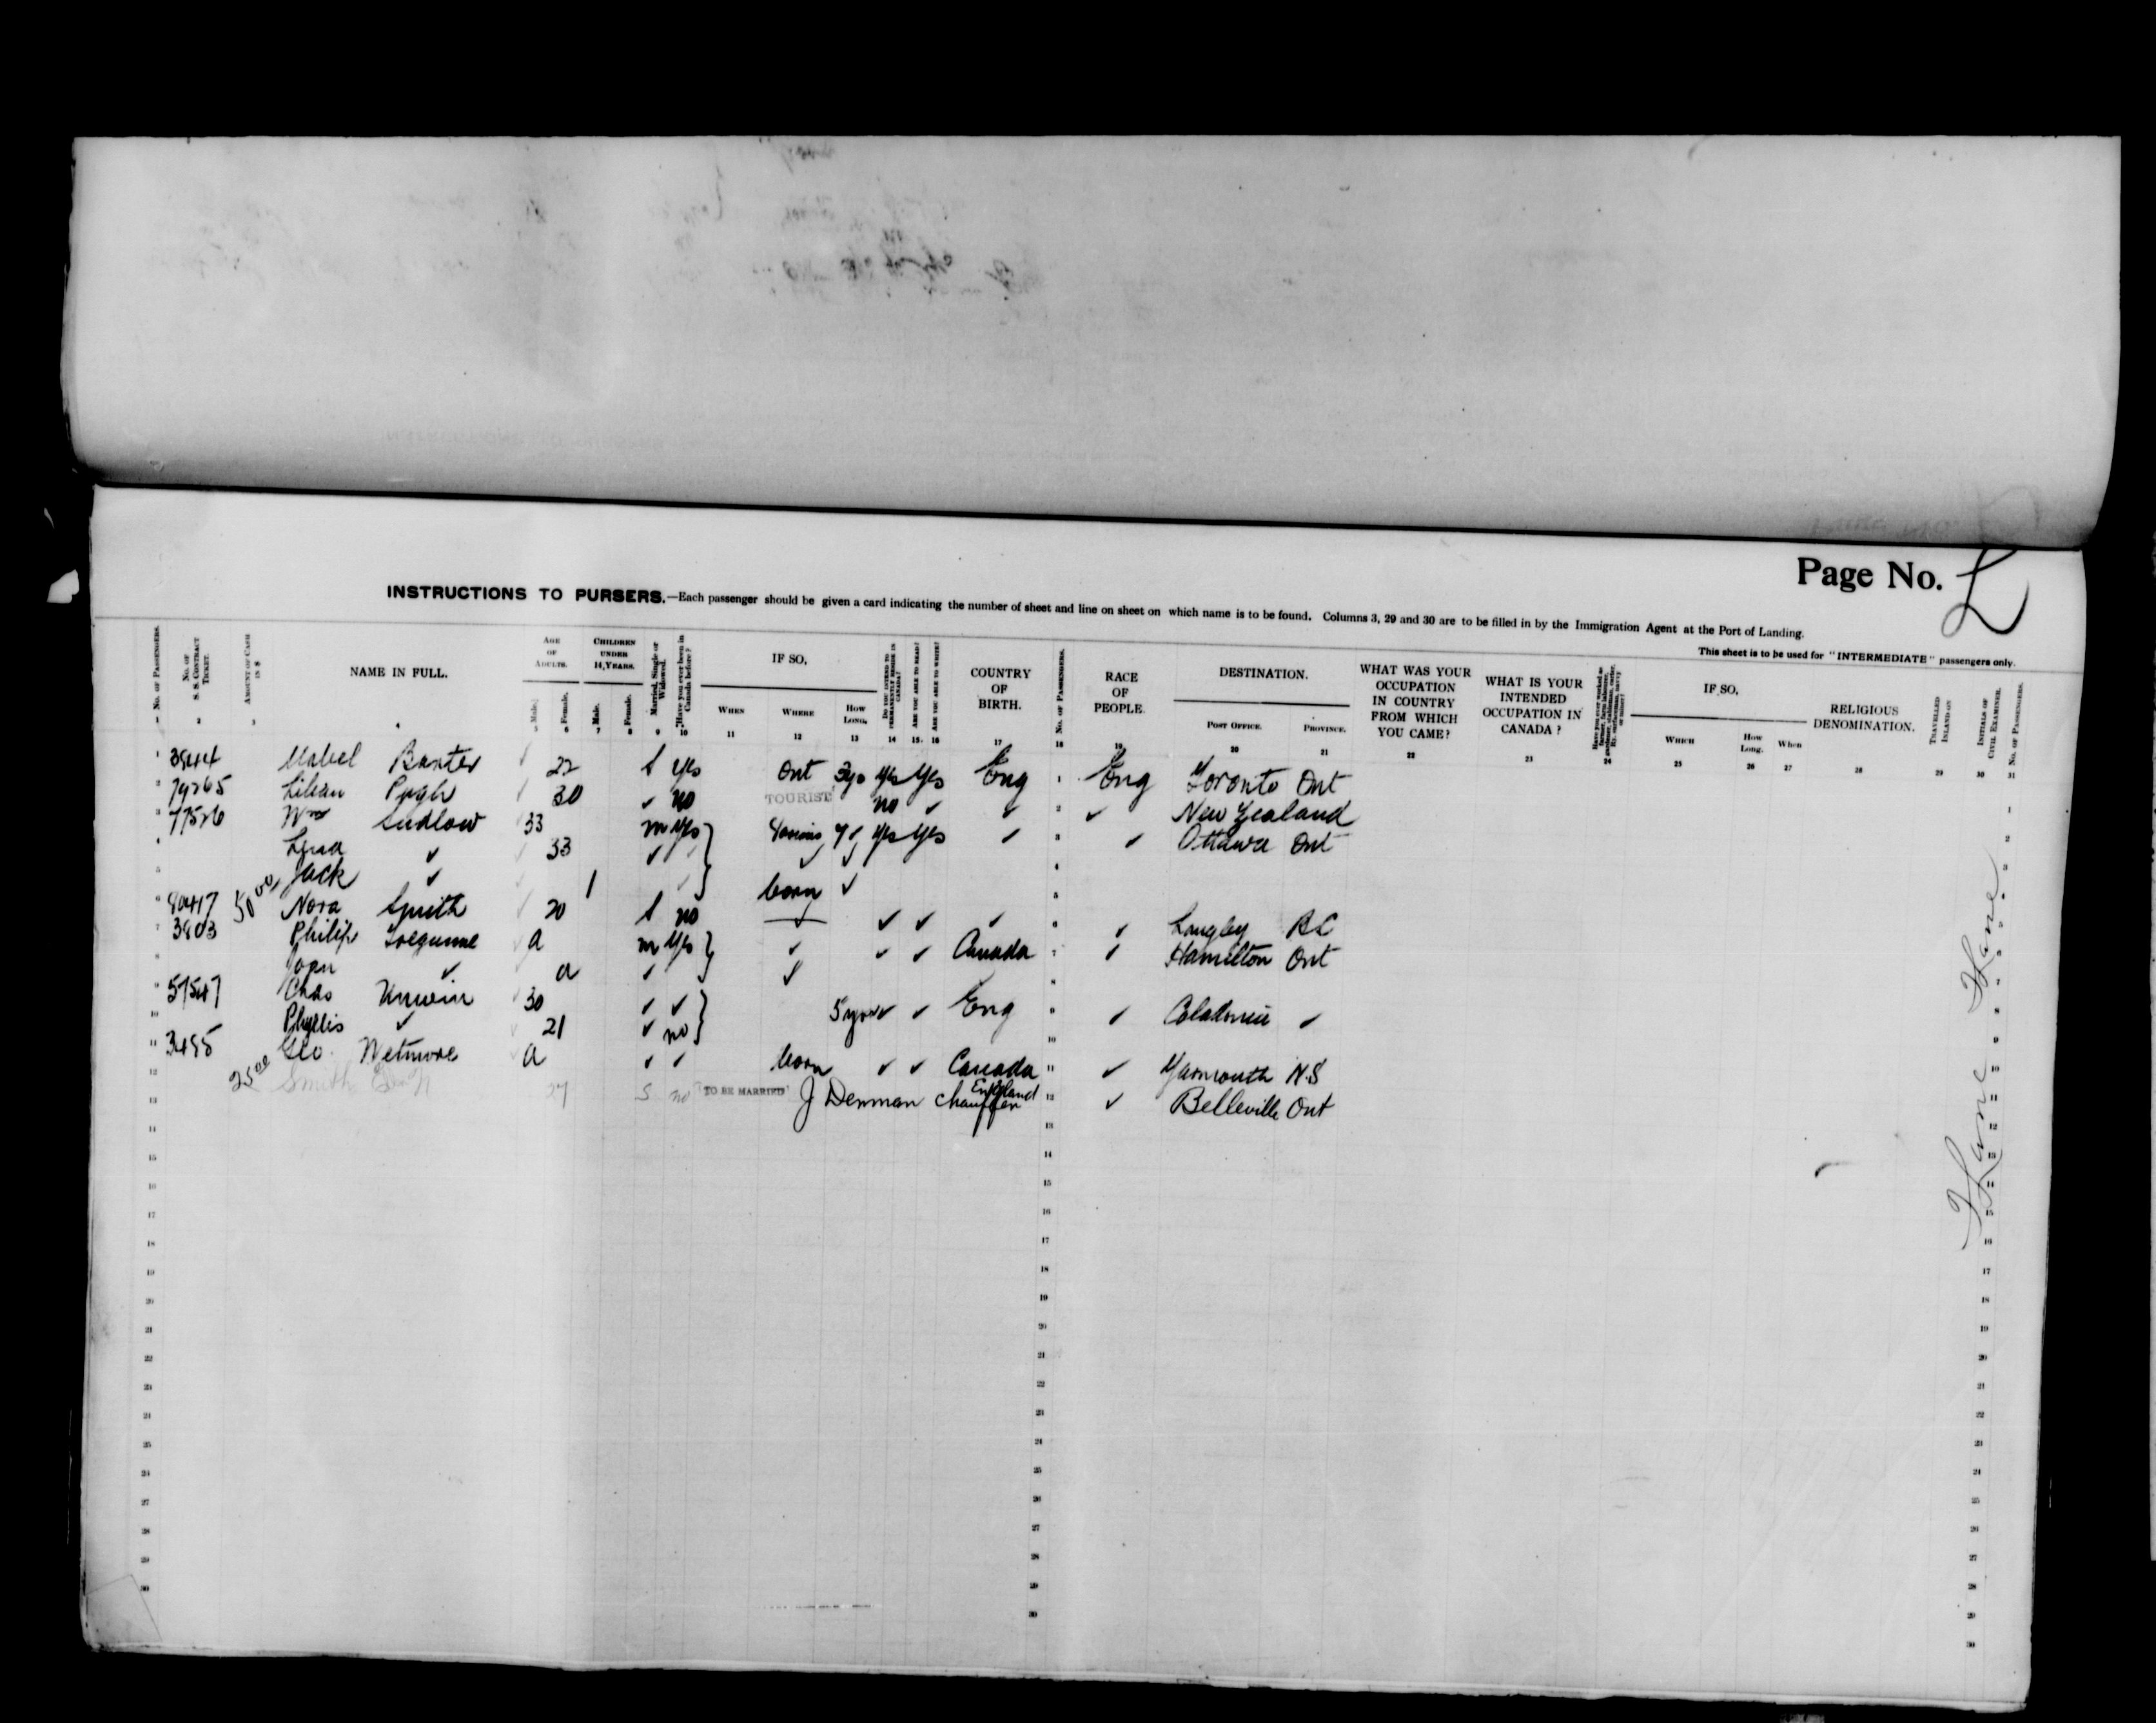 Page No. L
INSTRUCTIONS TO PURSERS.—Each passenger should be given a card indicating the number of sheet and line on sheet on which name is to be found. Columns 3, 29 and 30 are to be filled in by the Immigration Agent at the Port of Landing.
This sheet is to be used for "INTERMEDIATE" passengers only.
No. of Passengers. No. of S. S. Contract Ticket. Amount of Cash in $ NAME IN FULL. Age of Adults. Male. Female. Children under 14 Years. Male. Female. Married, Single or Widowed. Have you ever been in Canada before? IF SO, When Where How Long. Do you intend to permanently reside in Canada? Are you able to read? Are you able to write? COUNTRY OF BIRTH. No. of Passengers. RACE OF PEOPLE. DESTINATION. Post Office. Province. WHAT WAS YOUR OCCUPATION IN COUNTRY FROM WHICH YOU CAME? WHAT IS YOUR INTENDED OCCUPATION IN CANADA? IF SO, Which How Long. When RELIGIOUS DENOMINATION. Travelled Inland on Initials of Civil Examiner. No. of Passengers.
1 Mabel Baxter 22 S yes Ont 3yo yes yes Eng 1 Eng Toronto Ont
2 79265 Lilian Pugh ✓ 30 ✓ no TOURIST no ✓ ✓ 2 ✓ New Zealand
3 77526 Wm Ludlow 33 m yes yes yes ✓ 3 ✓ Ottawa Ont
4 ✓ 33 ✓ ✓ ✓ ✓ 4
5 Jack ✓ 1 ✓ born ✓ 5
6 50 00 Nora Smith 20 S no ✓ ✓ ✓ 6 ✓ Langley BC
7 3803 Philip a m yes ✓ ✓ ✓ Canada 7 ✓ Hamilton Ont
8 Joan ✓ a ✓ ✓ 8
9 57547 Chas Unwin 30 ✓ ✓ ✓ ✓ Eng 9 ✓ Caledonia ✓
10 Phyllis ✓ 21 ✓ no 10
11 3455 Geo. Wetmore a ✓ ✓ born ✓ ✓ Canada 11 ✓ Yarmouth N.S
12 25 00 Smith 27 S no TO BE MARRIED J Denman chauffer England 12 ✓ Belleville Ont